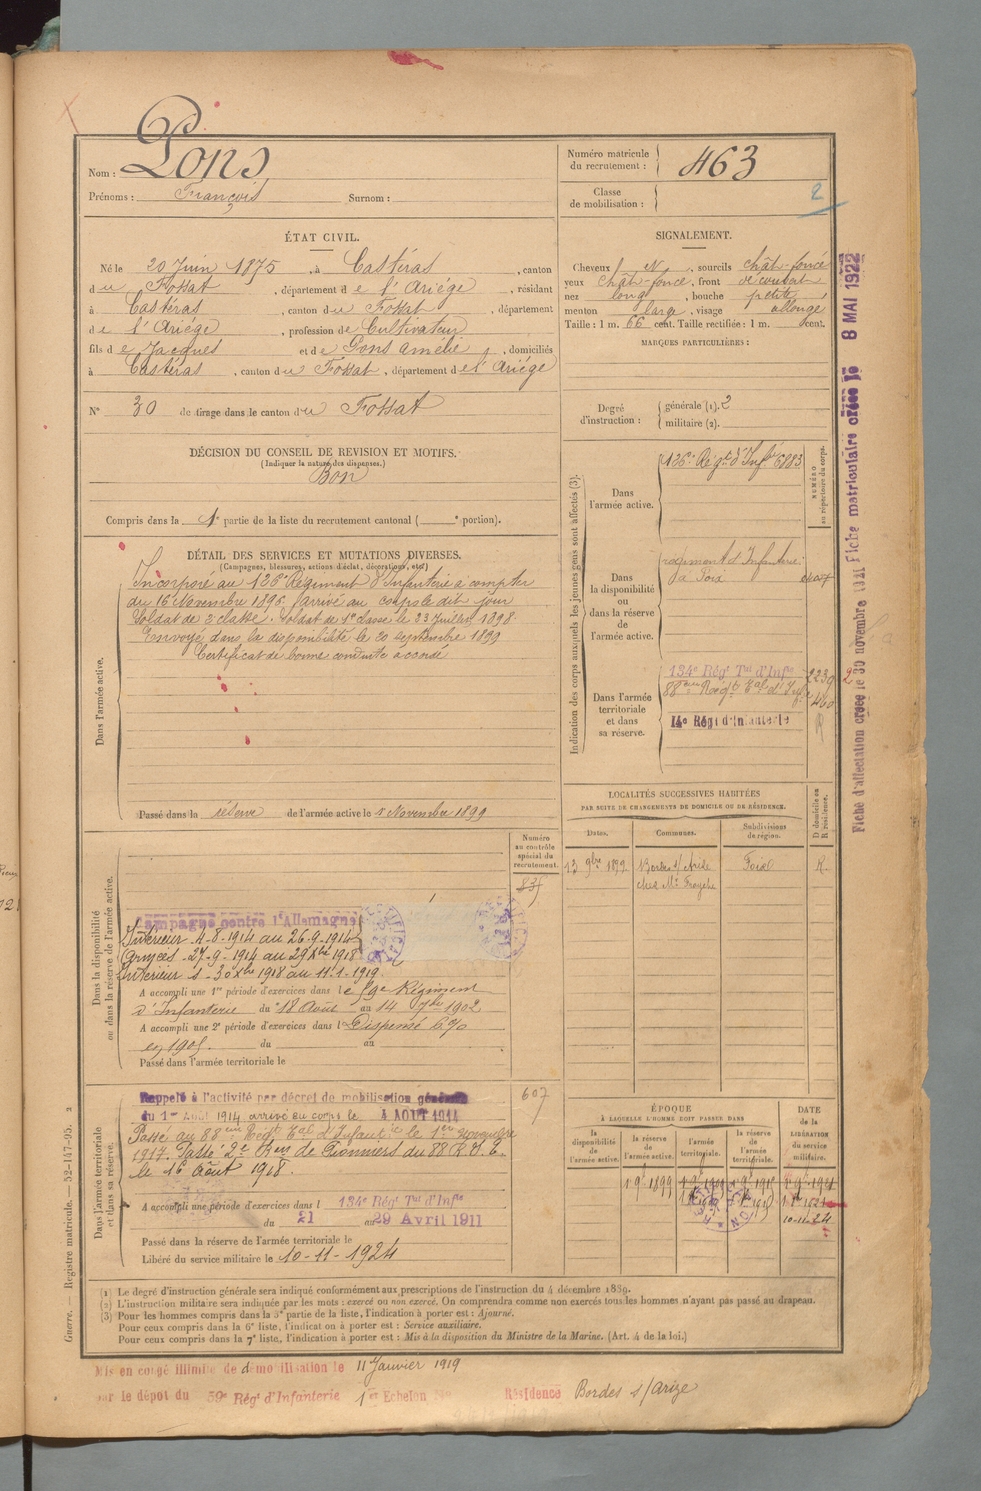 Nom : Pons
Prénoms : François Surnom :
Numéro matricule du recrutement : 463
Classe de mobilisation :
2
ÉTAT CIVIL.
Né le 20 Juin 1875, à Castéras, canton
du Fossat, département de l'Ariége, résidant
à Castéras, canton du Fossat, département
de l'Ariége, profession de Cultivateur
fils de Jacques et de Pons Amélie, domiciliés
à Castéras, canton du Fossat, département de l'Ariége
N° 30 de tirage dans le canton du Fossat
SIGNALEMENT.
Cheveux N, sourcils chât-foncé
yeux chât-foncé, front découvert
nez long, bouche petite
menton large, visage allongé
Taille : 1 m. 66 cent. Taille rectifiée : 1 m. cent.
MARQUES PARTICULIÈRES :
Degré d'instruction : générale (1). 2
militaire (2).
DÉCISION DU CONSEIL DE REVISION ET MOTIFS.
(Indiquer la nature des dispenses.)
Bon
Compris dans la 1e partie de la liste du recrutement cantonal ( e portion).
DÉTAIL DES SERVICES ET MUTATIONS DIVERSES.
(Campagnes, blessures, actions d'éclat, décorations, etc.)
Dans l'armée active.
Incorporé au 126e Régiment d'Infanterie à compter
du 16 Novembre 1896, arrivé au corps le dit jour
Soldat de 2e classe. Soldat de 1e classe le 23 Juillet 1898
Envoyé dans la disponibilité le 20 septembre 1899
Certificat de bonne conduite accordé
Passé dans la réserve de l'armée active le 1 Novembre 1899
Indication des corps auxquels les jeunes gens sont affectés (3).
NUMÉRO au répertoire du corps.
Dans l'armée active.
126e Régt d'Infie 6883
Dans la disponibilité ou dans la réserve de l'armée active.
régiment d'Infanterie
de Foix
Dans l'armée territoriale et dans sa réserve.
134e Régt Tal d'Infie 2239
88eme Régt Tal d'Inf. 460
14e Régt d'Infanterie R
LOCALITÉS SUCCESSIVES HABITÉES
PAR SUITE DE CHANGEMENTS DE DOMICILE OU DE RÉSIDENCE.
Dates. Communes. Subdivisions de région. D domicile ou R résidence.
13 9bre 1899 Bordes s/ Arize Foix R.
chez Mr
Dans la disponibilité ou dans la réserve de l'armée active.
Numéro au contrôle spécial du recrutement.
835
Campagne contre l'Allemagne
Intérieur 4-8-1914 au 26-9-1914
Armées -27-9-1914 au 29 Xbre 1918
Intérieur 1- 30 Xbre 1918 au 11-1-1919.
A accompli une 1re période d'exercices dans le 59e Régiment
d'Infanterie du 18 Août au 14 7bre 1902
A accompli une 2e période d'exercices dans l Dispensé 6%
en 1905. du au
Passé dans l'armée territoriale le
Dans l'armée territoriale et dans sa réserve.
607
Rappelé à l'activité par décret de mobilisation générale
du 1er Août 1914 arrivé au corps le 4 AOUT 1914
Passé au 88eme Régt Tal d'Infanterie le 1er Novembre
1917. Passé 2e Bon de Pionniers du 88 R.I.T.
le 16 Août 1918.
A accompli une période d'exercices dans l 134e Régt Tal d'Infie
du 21 au 29 Avril 1911
Passé dans la réserve de l'armée territoriale le
Libéré du service militaire le 10-11-1924
ÉPOQUE
À LAQUELLE L'HOMME DOIT PASSER DANS
la disponibilité de l'armée active. la réserve de l'armée active. l'armée territoriale. la réserve de l'armée territoriale.
DATE de la LIBÉRATION du service militaire.
10-11-24
(1) Le degré d'instruction générale sera indiqué conformément aux prescriptions de l'instruction du 4 décembre 1889.
(2) L'instruction militaire sera indiquée par les mots : exercé ou non exercé. On comprendra comme non exercés tous les hommes n'ayant pas passé au drapeau.
(3) Pour les hommes compris dans la 5e partie de la liste, l'indication à porter est : Ajourné.
Pour ceux compris dans la 6e liste, l'indication à porter est : Service auxiliaire.
Pour ceux compris dans la 7e liste, l'indication à porter est : Mis à la disposition du Ministre de la Marine. (Art. 4 de la loi.)
Mis en congé illimité de démobilisation le 11 Janvier 1919
sur le dépôt du 59e Régt d'Infanterie 1er Echelon Résidence Bordes s/Arize
Guerre. — Registre matricule. — 52-147-95.
Fiche d'affectation créée le 30 novembre 1921 Fiche matriculaire créée le 8 MAI 1922